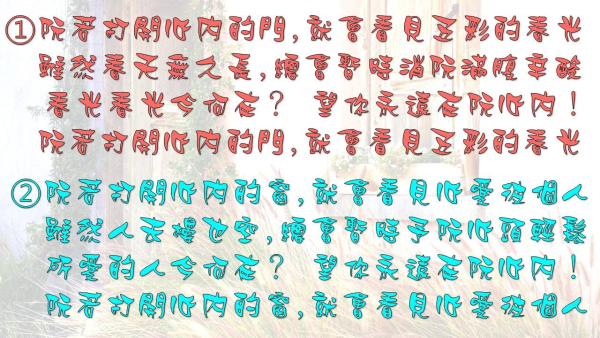 ①阮若打開心內的門,就會看見五彩的春光
雖然春天無久長,總會暫時消阮滿腹辛酸
春光春光今何在? 望你永遠在阮心內!
阮若打開心內的門,就會看見五彩的春光
②阮若打開心內的窗,就會看見心愛彼個人
雖然人去樓也空,總會暫時予阮心頭輕鬆
所愛的人今何在? 望你永遠在阮心內!
阮若打開心內的窗,就會看見心愛彼個人